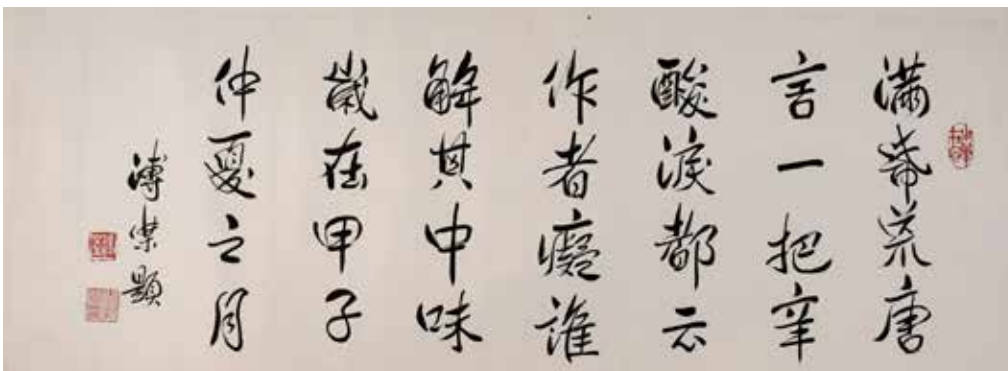 滿帋荒唐
言一把辛
酸淚都云
作者癡誰
解其中味
歲在甲子
仲夏之月
溥杰題